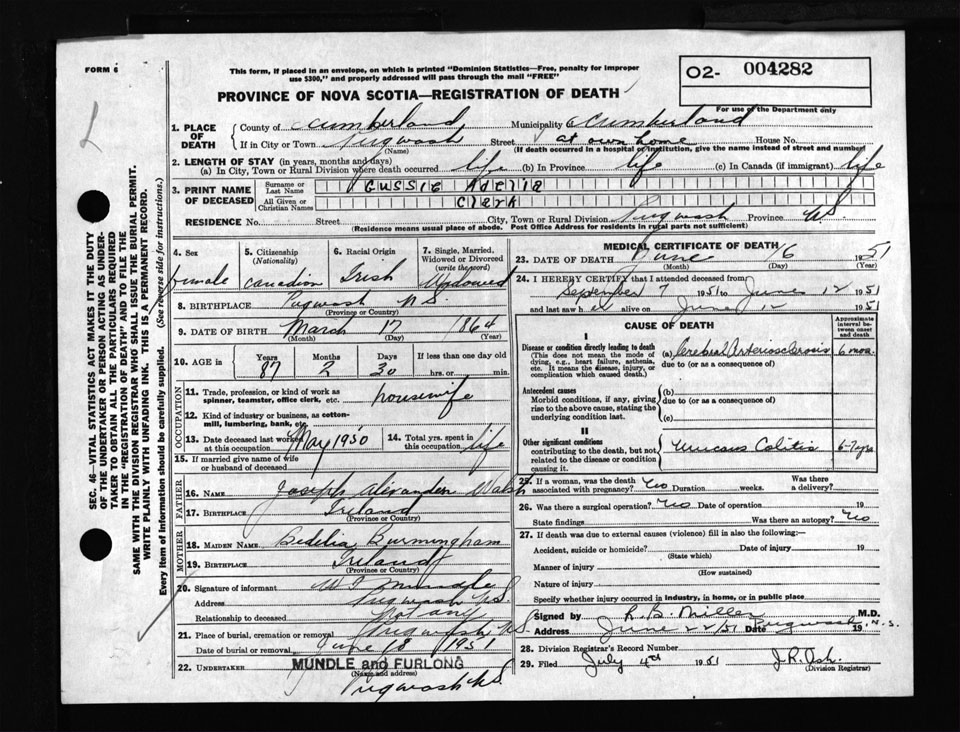 FORM 6
This form, if placed in an envelope, on which is printed "Dominion Statistics—Free, penalty for improper
use $300," and properly addressed will pass through the mail "FREE"
O2- 004282
For use of the Department only
PROVINCE OF NOVA SCOTIA—REGISTRATION OF DEATH
1. PLACE OF DEATH
County of Cumberland Municipality Cumberland
If in City or Town Pugwash Street at own home House No.
(Name) (If death occurred in a hospital or institution, give the name instead of street and number)
2. LENGTH OF STAY (in years, months and days)
(a) In City, Town or Rural Division where death occurred life (b) In Province life (c) In Canada (if immigrant) life
3. PRINT NAME OF DECEASED
Surname or Last Name Gussie Adelia
All Given or Christian Names Clark
RESIDENCE No. Street City, Town or Rural Division Pugwash Province N.S.
(Residence means usual place of abode. Post Office Address for residents in rural parts not sufficient)
4. Sex female
5. Citizenship (Nationality) Canadian
6. Racial Origin Irish
7. Single, Married, Widowed or Divorced (write the word) Widowed
8. BIRTHPLACE Pugwash N.S.
(Province or Country)
9. DATE OF BIRTH March 17 1864
(Month) (Day) (Year)
10. AGE in Years 87 Months 2 Days 30 If less than one day old hrs. or min.
OCCUPATION
11. Trade, profession, or kind of work as spinner, teamster, office clerk, etc. housewife
12. Kind of industry or business, as cotton-mill, lumbering, bank, etc.
13. Date deceased last worked at this occupation May 1950
14. Total yrs. spent in this occupation life
15. If married give name of wife or husband of deceased
FATHER
16. NAME Joseph Alexander Walsh
17. BIRTHPLACE Ireland
(Province or Country)
MOTHER
18. MAIDEN NAME Bedelia Burmingham
19. BIRTHPLACE Ireland
(Province or Country)
20. Signature of informant W T Mundle
Address Pugwash N.S.
Relationship to deceased Not any
21. Place of burial, cremation or removal Pugwash N.S.
Date of burial or removal June 18 1951
22. UNDERTAKER MUNDLE and FURLONG
(Name and address)
Pugwash N.S.
MEDICAL CERTIFICATE OF DEATH
23. DATE OF DEATH June 16 1951
(Month) (Day) (Year)
24. I HEREBY CERTIFY that I attended deceased from
September 7 1951 to June 12 1951
and last saw her alive on June 12 1951
CAUSE OF DEATH
Approximate interval between onset and death
I
Disease or condition directly leading to death (a) Cerebral Arteriosclerosis 6 mos.
(This does not mean the mode of dying, e.g., heart failure, asthenia, etc. It means the disease, injury, or complication which caused death.)
due to (or as a consequence of)
Antecedent causes (b)
Morbid conditions, if any, giving rise to the above cause, stating the underlying condition last.
due to (or as a consequence of)
(c)
II
Other significant conditions contributing to the death, but not related to the disease or condition causing it. Mucous Colitis 6-7 yrs
25. If a woman, was the death associated with pregnancy? No Duration weeks. Was there a delivery?
26. Was there a surgical operation? No Date of operation 19
State findings Was there an autopsy? No
27. If death was due to external causes (violence) fill in also the following:—
Accident, suicide or homicide? Date of injury 19
(State which)
Manner of injury
(How sustained)
Nature of injury
Specify whether injury occurred in industry, in home, or in public place
Signed by R. B. Miller M.D.
Address June 22/51 Date Pugwash 19 N.S.
28. Division Registrar's Record Number
29. Filed July 4th 1951 J. R. Ash.
(Division Registrar)
SEC. 46—VITAL STATISTICS ACT MAKES IT THE DUTY
OF THE UNDERTAKER OR PERSON ACTING AS UNDER-
TAKER TO OBTAIN ALL THE PARTICULARS REQUIRED
IN THE "REGISTRATION OF DEATH" AND TO FILE THE
SAME WITH THE DIVISION REGISTRAR WHO SHALL ISSUE THE BURIAL PERMIT.
WRITE PLAINLY WITH UNFADING INK. THIS IS A PERMANENT RECORD.
Every item of information should be carefully supplied. (See reverse side for instructions.)